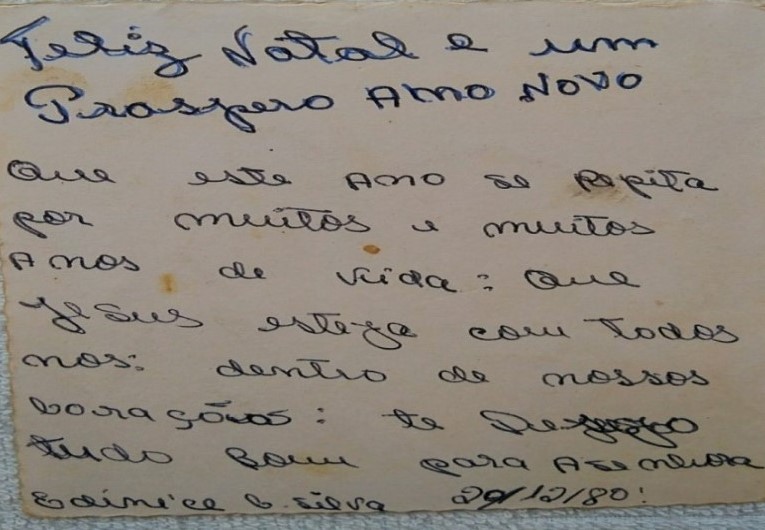 Feliz Natal e um
Prospero Ano Novo
Que este Ano se Repita
por muitos e muitos
Anos de vida: Que
Jesus esteja com todos
nos: dentro de nossos
Corações: te Desejo
tudo Bom para Asenhora
Edinice C. Silva 29/12/80!